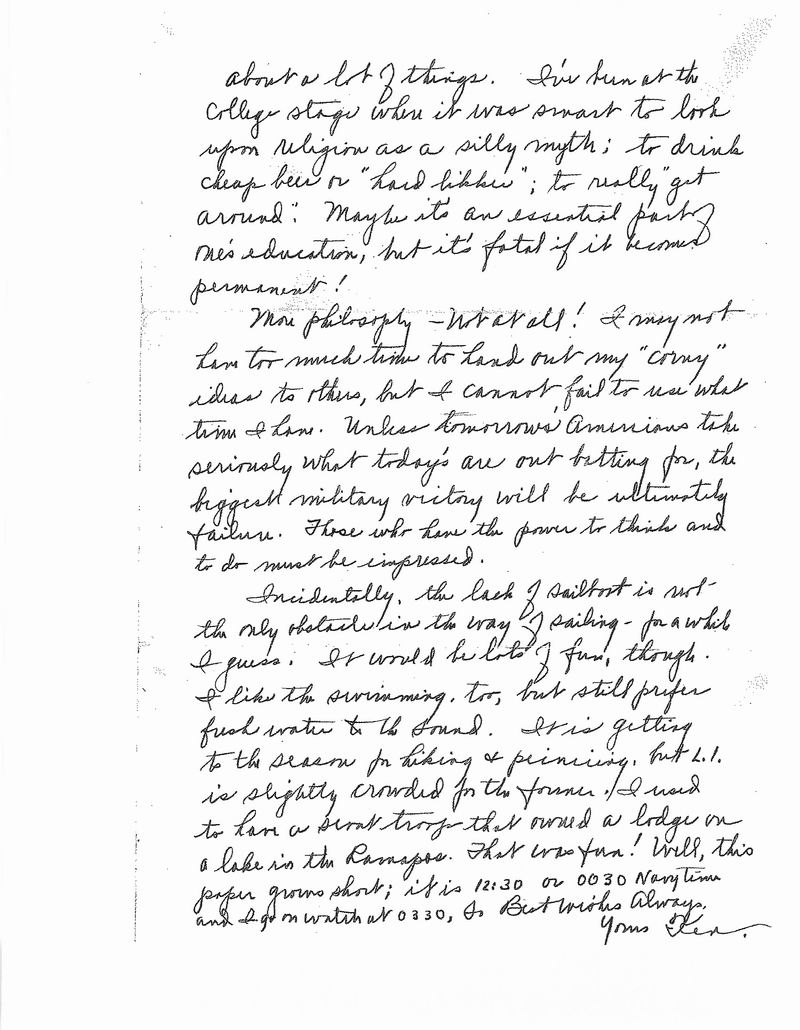 about a lot of things. I've been at the
College stage when it was smart to look
upon religion as a silly myth; to drink
cheap beer or "hard likker"; to really "get
around". Maybe it's an essential part of
one's education, but it's fatal if it becomes
permanent!
More philosophy – Not at all! I may not
have too much time to hand out my "corny"
ideas to others, but I cannot fail to use what
time I have. Unless tomorrows' Americans take
seriously what today's are out batting for, the
biggest military victory will be ultimately
failure. Those who have the power to think and
to do must be impressed.
Incidentally, the lack of sailboat is not
the only obstacle in the way of sailing – for a while
I guess. It would be lots of fun, though.
I like the swimming, too, but still prefer
fresh water to the Sound. It is getting
to the season for hiking & picnicing, but L.I.
is slightly crowded for the former. I used
to have a scout troop that owned a lodge on
a lake in the Ramapos. That was fun! Well, this
paper grows short; it is 12:30 or 0030 Navy time
and I go on watch at 0330, So Best Wishes Always,
Yours